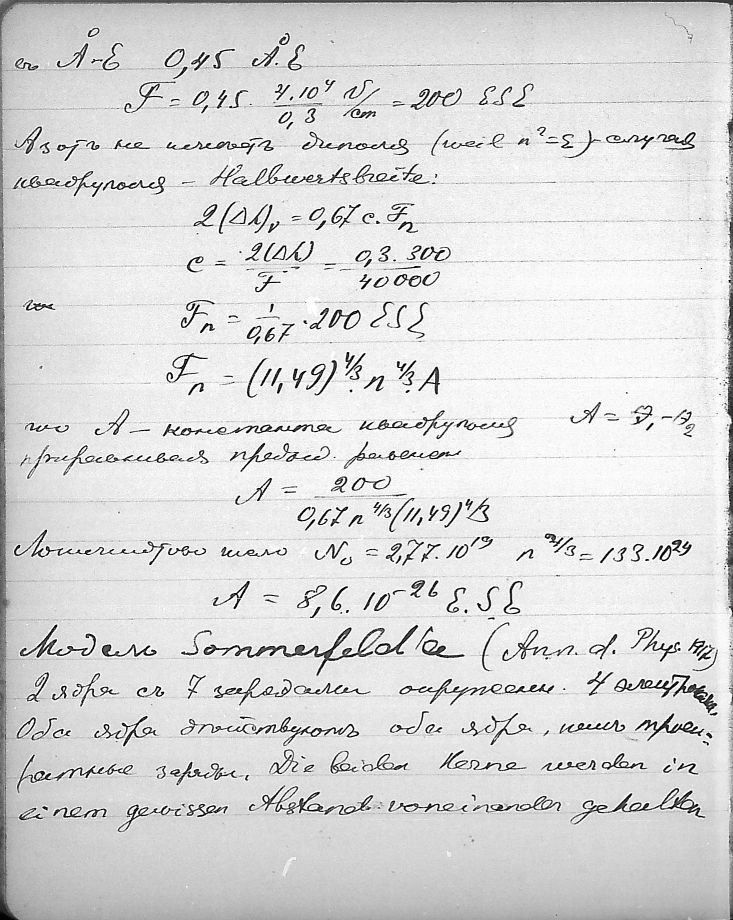 въ Å-E 0,45 Å.E
F = 0,45 · 4·10⁴/0,3 V/cm = 200 ESE
Азотъ не имеетъ диполя (weil n²=ε) - случай
квадруполя - Halbwertsbreite:
2(Δλ)ᵥ = 0,67 c. Fₙ
c = 2(Δλ)/F = 0,3·300/40000
Fₙ = 1/0,67 · 200 ESE
Fₙ = (11,49)^4/3 · n^4/3 · A
A — константа квадруполя A =
приравнивая предыд.
A = 200/0,67 n^4/3 (11,49)^4/3
число N₀ = 2,77·10¹⁹ = 133·10²⁴
A = 8,6·10⁻²⁶ E.S.E
Модель Sommerfeld'a (Ann. d. Phys. 1917)
2 ядра съ 7 зарядами окружены 4 электронами,
Оба ядра оба ядра,
заряды. Die beiden Kerne werden in
einem gewissen Abstand voneinander gehalten